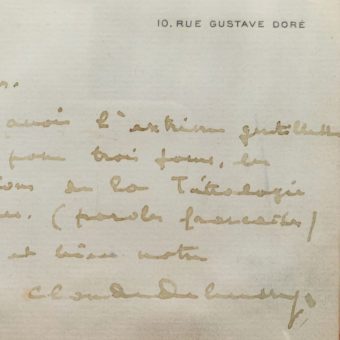 10, RUE GUSTAVE DORÉ
s.
avoir l'extrême gentillesse
pour trois jours, les
ions de la Tétralogie
(paroles françaises)
et bien votre
Claude Debussy